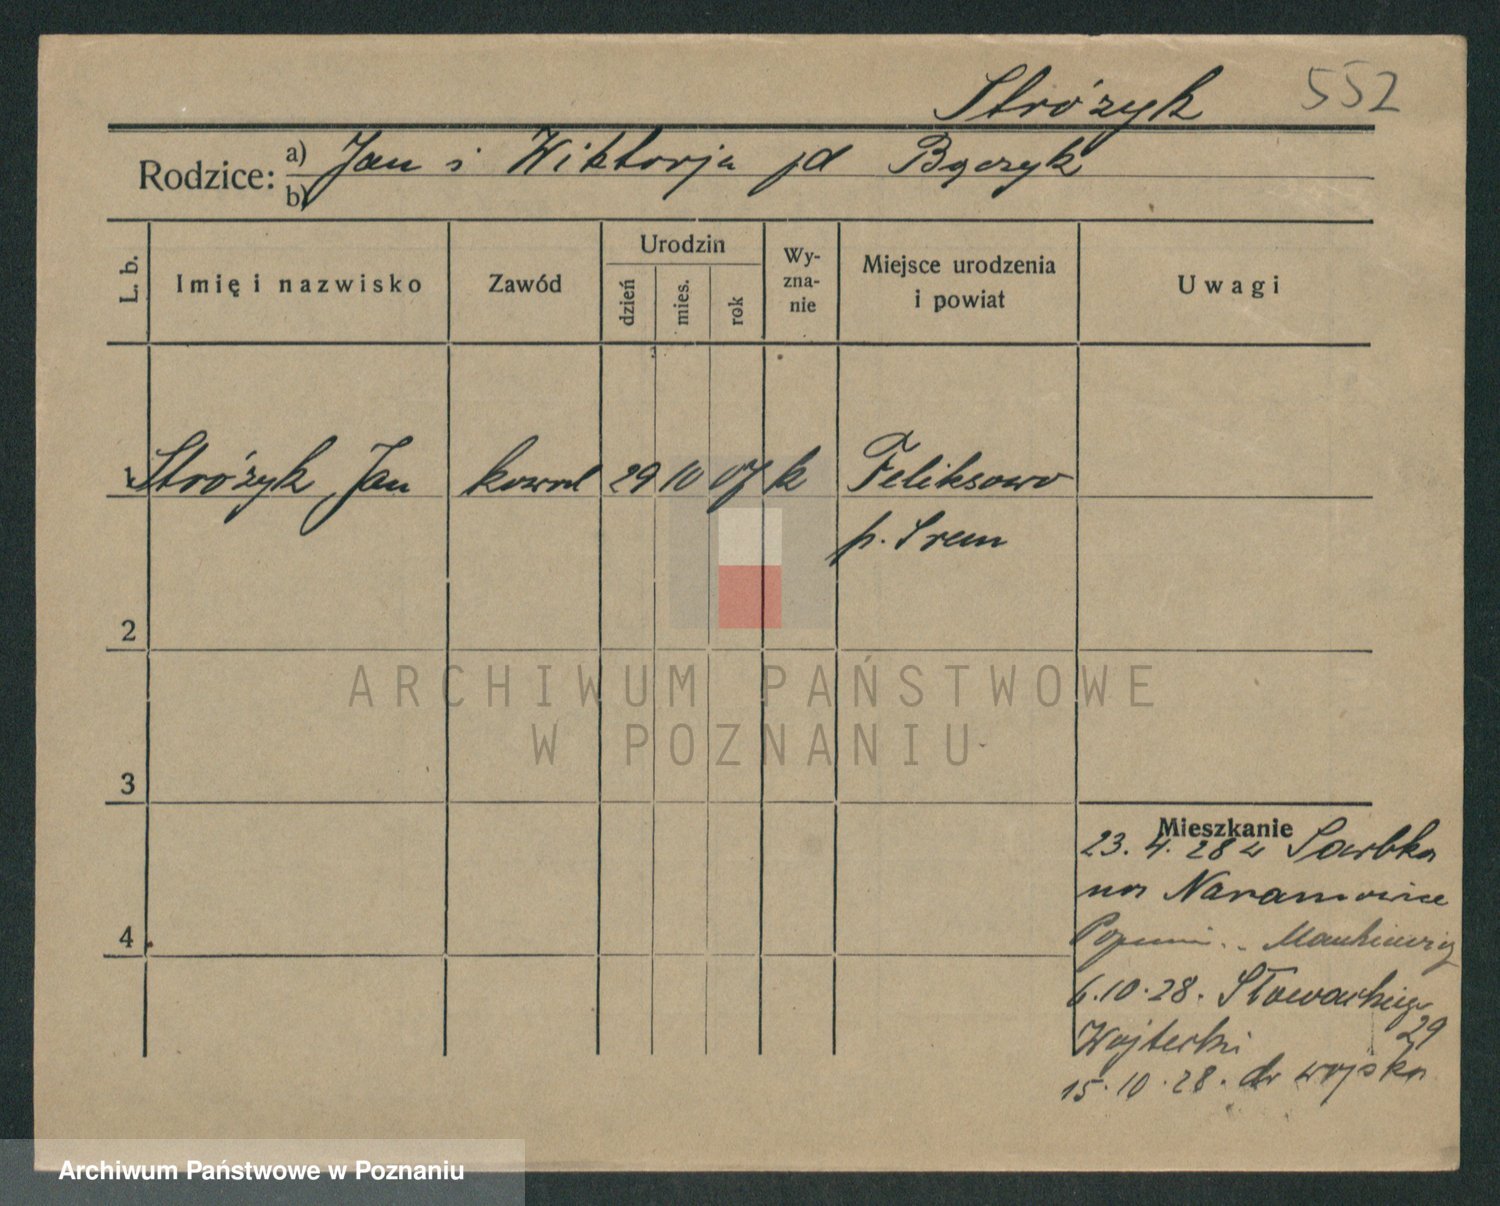 Stróżyk 552
Rodzice: a) Jan i Wiktorja jd Bączyk
b)
L. b.
Imię i nazwisko
Zawód
Urodzin
dzień
mies.
rok
Wy-
zna-
nie
Miejsce urodzenia
i powiat
Uwagi
1 Stróżyk Jan kowal 29 10 07 k Feliksowo
p. Srem
2
3
4
Mieszkanie
23. 4. 28 z Sarbka
na Naramowice
6.10.28. Słowackiego
29
Wojterski
15.10.28. do wojska
ARCHIWUM PAŃSTWOWE
W POZNANIU
Archiwum Państwowe w Poznaniu